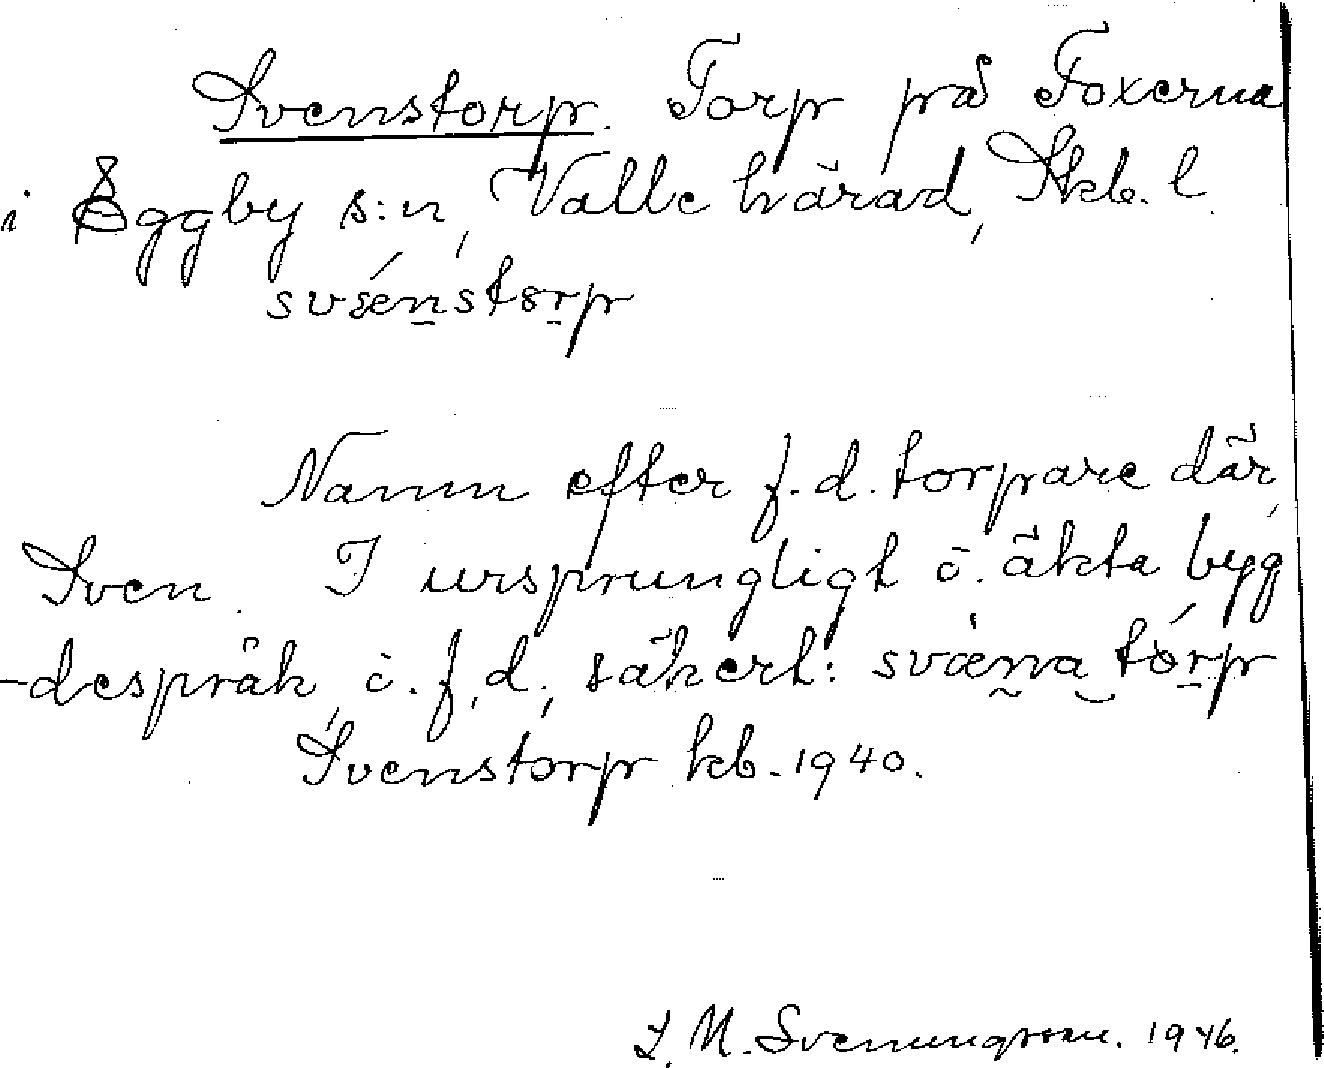 Svenstorp. Torp på Foxerna
i Eggby s:n, Valle härad, Skb. l.
svǽn̲stɷr̲p
Namn efter f.d. torpare där,
Sven. I ursprungligt o. äkta byg
-despråk, o. f, d., säkert: svæ̀n̰a tɷ́r̲p
Svenstorp kb. 1940.
L. M. Svenungsson. 1946.